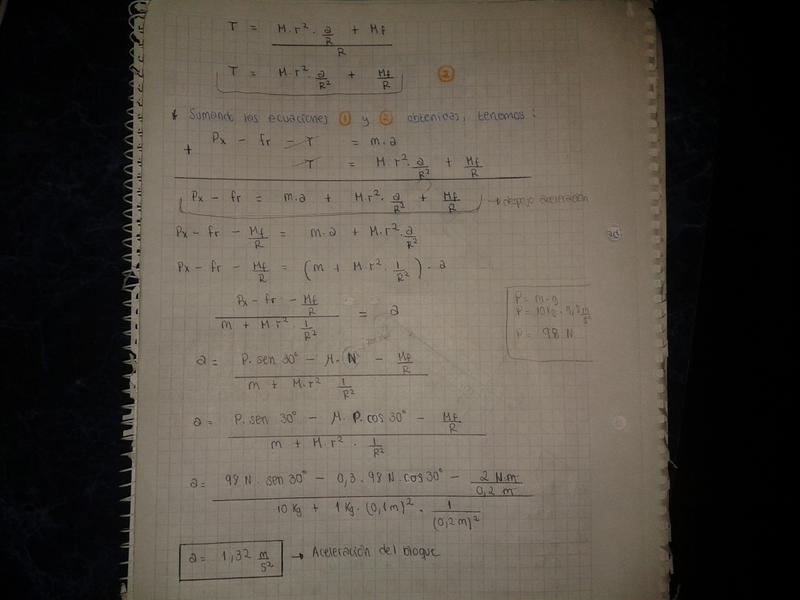 T = (M.r². a/R + Mf) / R
T = M.r². a/R² + Mf/R  2
* Sumando las ecuaciones 1 y 2 obtenidas, tenemos:
Px - fr - T = m.a
+ T = M r². a/R² + Mf/R
Px - fr = m.a + M.r². a/R² + Mf/R → despejo aceleración
Px - fr - Mf/R = m.a + M.r². a/R²
Px - fr - Mf/R = (m + M.r². 1/R²) . a
(Px - fr - Mf/R) / (m + M r². 1/R²) = a
P = m.g
P = 10 Kg . 9,8 m/s²
P = 98 N
a = (P. sen 30° - M. N - Mf/R) / (m + M.r² 1/R²)
a = (P. sen 30° - M. P. cos 30° - Mf/R) / (m + M.r² . 1/R²)
a = (98 N . sen 30° - 0,3 . 98 N . cos 30° - 2 N.m/0,2 m) / (10 Kg + 1 Kg . (0,1 m)² . 1/(0,2 m)²)
a = 1,32 m/s² → Aceleración del bloque